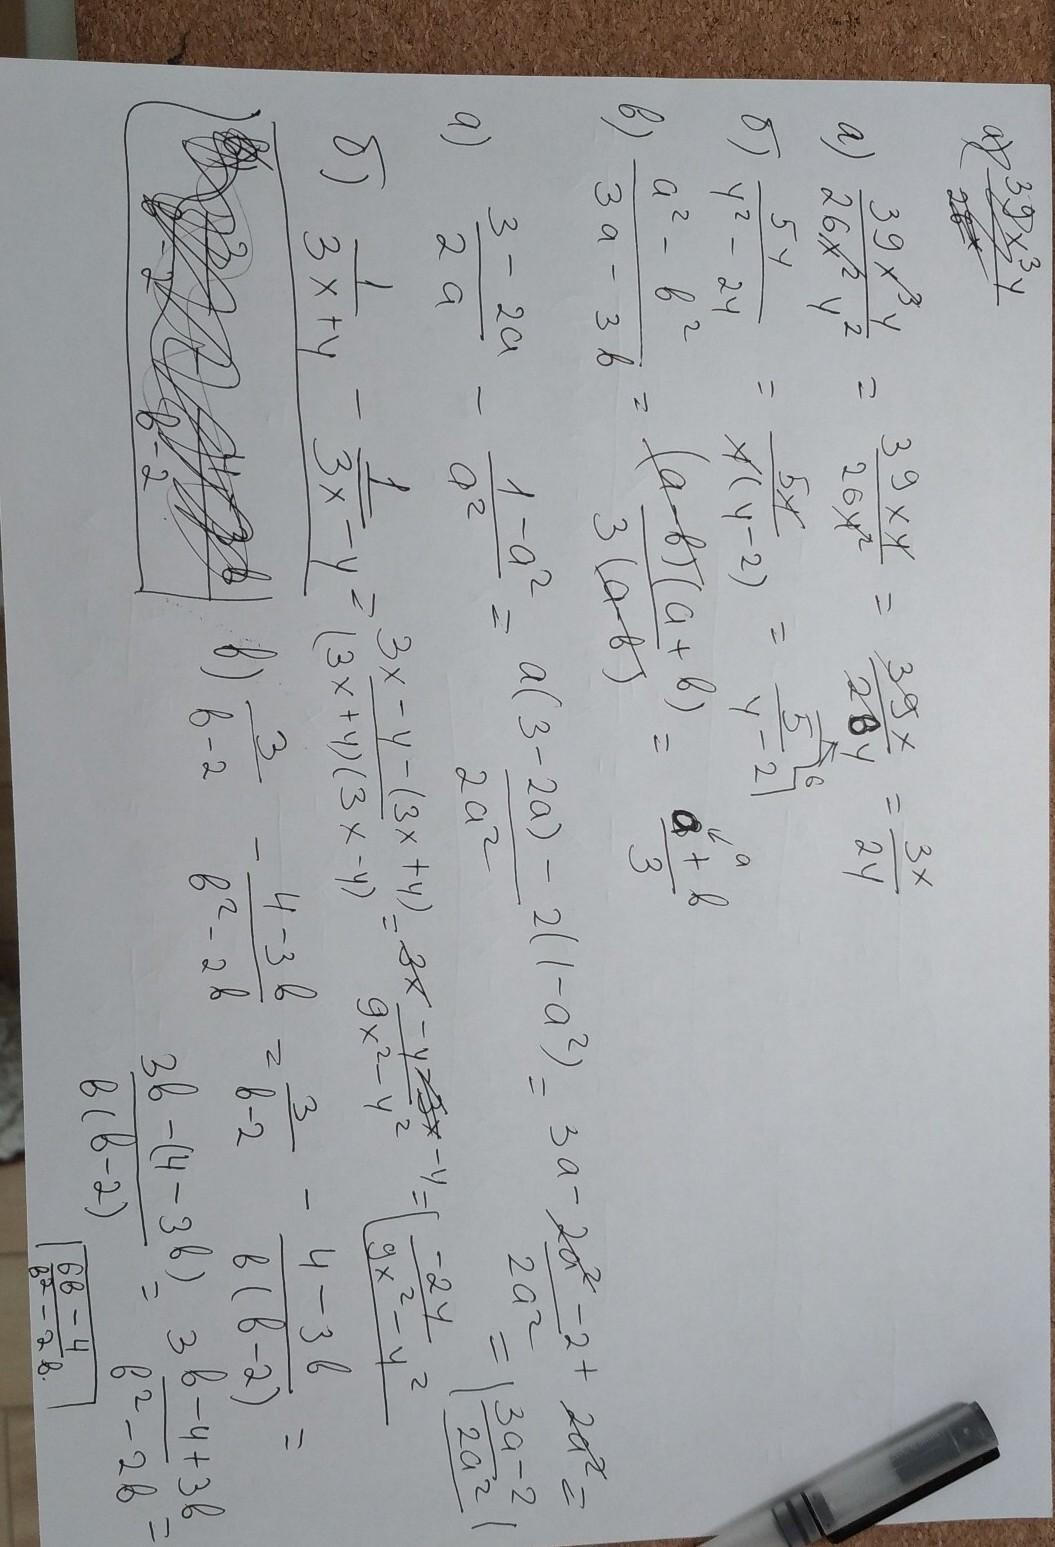 а) 39x³y / 26x²y² = 39xy / 26y² = 39x / 26y = 3x / 2y
б) 5y / y² - 2y = 5y / y(y-2) = 5 / y-2 б
в) a² - b² / 3a - 3b = (a-b)(a+b) / 3(a-b) = a+b / 3 a
а) 3-2a / 2a - 1-a² / a² = a(3-2a) - 2(1-a²) / 2a² = 3a - 2a² - 2 + 2a² / 2a² = 3a-2 / 2a²
б) 1 / 3x+y - 1 / 3x-y = 3x-y-(3x+y) / (3x+y)(3x-y) = 3x-y-3x-y / 9x²-y² = -2y / 9x²-y²
в) 3 / b-2 - 4-3b / b²-2b = 3 / b-2 - 4-3b / b(b-2) =
3b-(4-3b) / b(b-2) = 3b-4+3b / b²-2b =
6b-4 / b²-2b